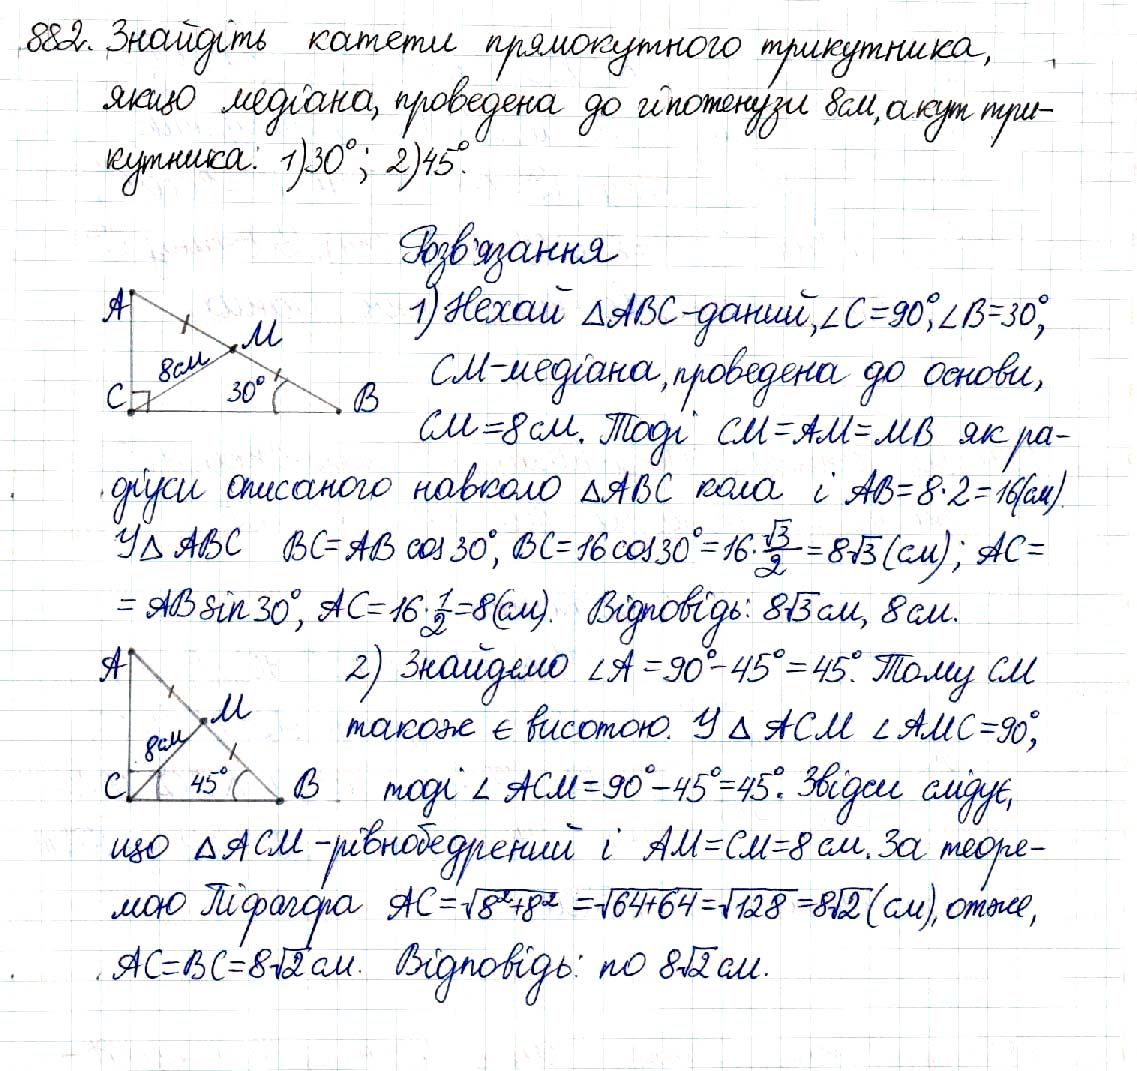 882. Знайдіть катети прямокутного трикутника,
якщо медіана, проведена до гіпотенузи 8см, а кут три-
кутника: 1) 30°; 2) 45°.
Розв'язання
A
M
8см
30°
C
B
1) Нехай △ABC-даний, ∠C=90°, ∠B=30°,
CM-медіана, проведена до основи,
CM=8см. Тоді CM=AM=MB як ра-
діуси описаного навколо △ABC кола і AB=8·2=16(см).
У△ ABC BC=AB cos30°, BC=16cos30°=16·√3/2=8√3(см); AC=
= AB sin30°, AC=16·1/2=8(см). Відповідь: 8√3см, 8см.
A
M
8см
45°
C
B
2) Знайдемо ∠A=90°-45°=45°. Тому CM
також є висотою. У △ ACM ∠AMC=90°,
тоді ∠ACM=90°-45°=45°. Звідси слідує,
що △ACM-рівнобедрений і AM=CM=8см. За теоре-
мою Піфагора AC=√8²+8²=√64+64=√128=8√2(см), отже,
AC=BC=8√2см. Відповідь: по 8√2см.